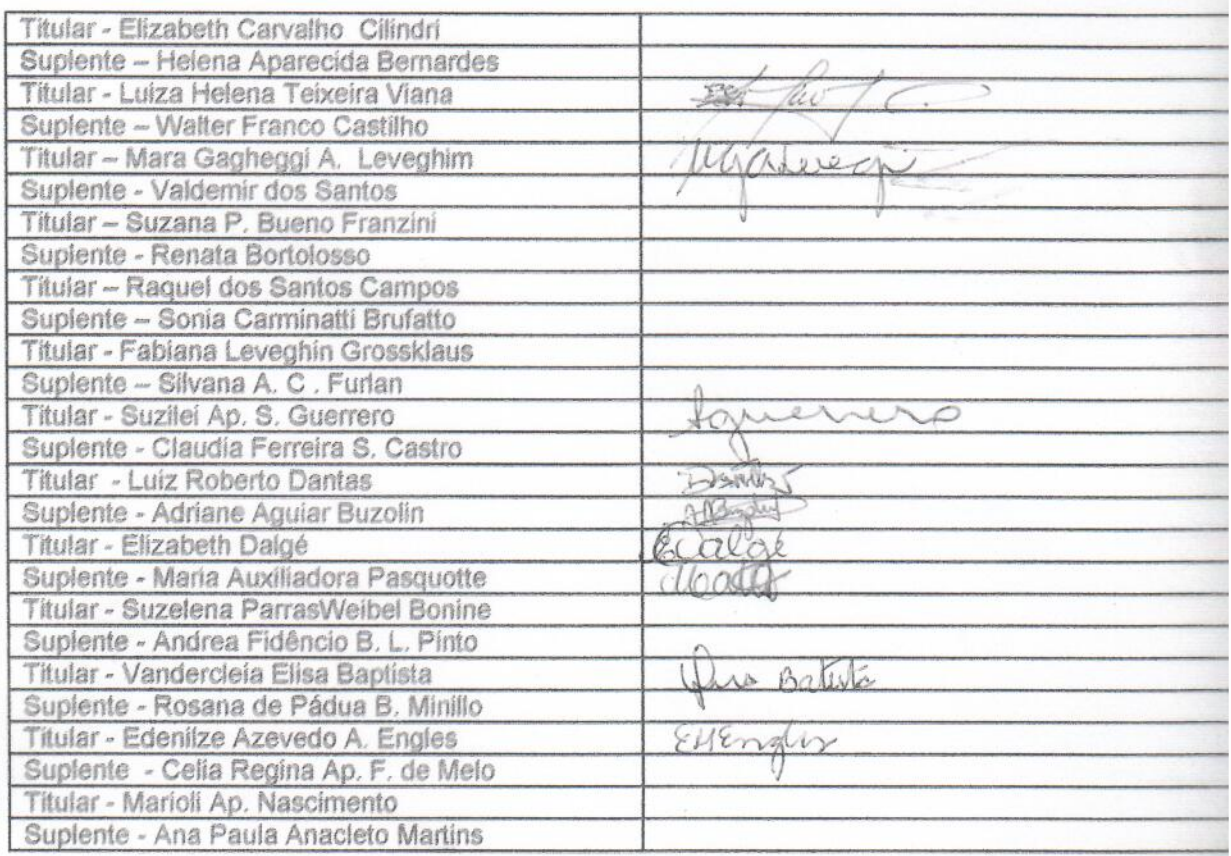 Titular - Elizabeth Carvalho Cilindri
Suplente – Helena Aparecida Bernardes
Titular - Luiza Helena Teixeira Viana
Suplente – Walter Franco Castilho
Titular – Mara Gagheggi A. Leveghim
Suplente - Valdemir dos Santos
Titular – Suzana P. Bueno Franzini
Suplente - Renata Bortolosso
Titular – Raquel dos Santos Campos
Suplente – Sonia Carminatti Brufatto
Titular - Fabiana Leveghin Grossklaus
Suplente – Silvana A. C . Furlan
Titular - Suzilei Ap. S. Guerrero Sguerrero
Suplente - Claudia Ferreira S. Castro
Titular - Luiz Roberto Dantas Dantas
Suplente - Adriane Aguiar Buzolin
Titular - Elizabeth Dalgé EDalgé
Suplente - Maria Auxiliadora Pasquotte
Titular - Suzelena ParrasWeibel Bonine
Suplente - Andrea Fidêncio B. L. Pinto
Titular - Vandercleia Elisa Baptista Batista
Suplente - Rosana de Pádua B. Minillo
Titular - Edenilze Azevedo A. Engles
Suplente - Celia Regina Ap. F. de Melo
Titular - Marioli Ap. Nascimento
Suplente - Ana Paula Anacleto Martins